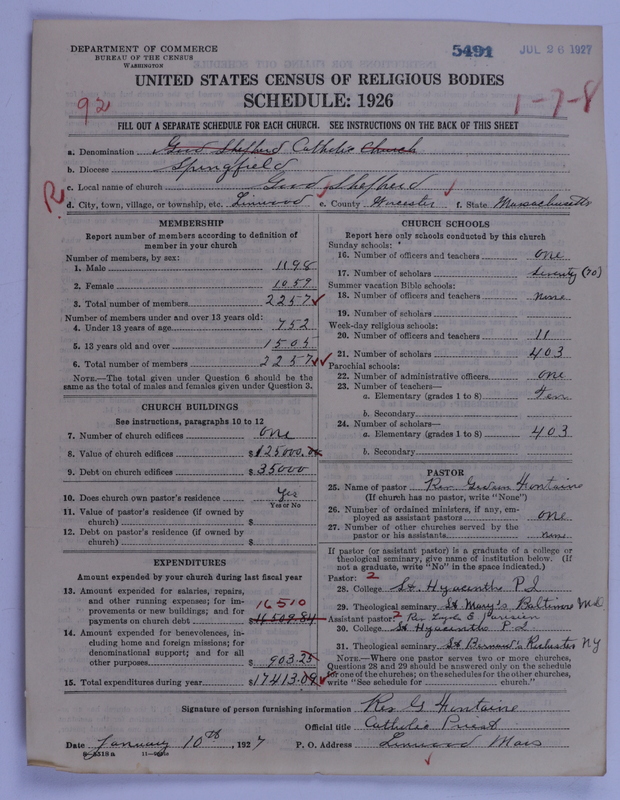 DEPARTMENT OF COMMERCE
BUREAU OF THE CENSUS
WASHINGTON
5491
JUL 26 1927
UNITED STATES CENSUS OF RELIGIOUS BODIES
SCHEDULE: 1926
92
1-7-8
FILL OUT A SEPARATE SCHEDULE FOR EACH CHURCH. SEE INSTRUCTIONS ON THE BACK OF THIS SHEET
a. Denomination Good Shepherd Catholic Church
b. Diocese Springfield
c. Local name of church Good Shepherd
R
d. City, town, village, or township, etc. Linwood e. County Worcester f. State Massachusetts
MEMBERSHIP
Report number of members according to definition of member in your church
Number of members, by sex:
1. Male 1198
2. Female 1059
3. Total number of members 2257
Number of members under and over 13 years old:
4. Under 13 years of age 752
5. 13 years old and over 1505
6. Total number of members 2257
NOTE.—The total given under Question 6 should be the same as the total of males and females given under Question 3.
CHURCH BUILDINGS
See instructions, paragraphs 10 to 12
7. Number of church edifices One
8. Value of church edifices $125000.00
9. Debt on church edifices $35000
10. Does church own pastor's residence Yes
Yes or No
11. Value of pastor's residence (if owned by church) $
12. Debt on pastor's residence (if owned by church) $
EXPENDITURES
Amount expended by your church during last fiscal year
13. Amount expended for salaries, repairs, and other running expenses; for improvements or new buildings; and for payments on church debt $16509.84
16510
14. Amount expended for benevolences, including home and foreign missions; for denominational support; and for all other purposes 903.25
15. Total expenditures during year $17413.09
CHURCH SCHOOLS
Report here only schools conducted by this church
Sunday schools:
16. Number of officers and teachers One
17. Number of scholars Seventy (70)
Summer vacation Bible schools:
18. Number of officers and teachers none
19. Number of scholars
Week-day religious schools:
20. Number of officers and teachers 11
21. Number of scholars 403
Parochial schools:
22. Number of administrative officers One
23. Number of teachers—
a. Elementary (grades 1 to 8) Ten
b. Secondary
24. Number of scholars—
a. Elementary (grades 1 to 8) 403
b. Secondary
PASTOR
25. Name of pastor Rev. Fontaine
(If church has no pastor, write "None")
26. Number of ordained ministers, if any, employed as assistant pastors One
27. Number of other churches served by the pastor or his assistants none
If pastor (or assistant pastor) is a graduate of a college or theological seminary, give name of institution below. (If not a graduate, write "No" in the space indicated.)
Pastor: 2
28. College St Hyacinthe P.Q.
29. Theological seminary St Mary's Baltimore Md.
Assistant pastor: 2 Rev E Parisien
30. College St Hyacinthe P.Q.
31. Theological seminary St Bernard's Rochester NY
NOTE.—Where one pastor serves two or more churches, Questions 28 and 29 should be answered only on the schedule for one of the churches; on the schedules for the other churches, write "See schedule for church."
Signature of person furnishing information Rev G Fontaine
Official title Catholic Priest
Date January 10th, 1927 P. O. Address Linwood Mass